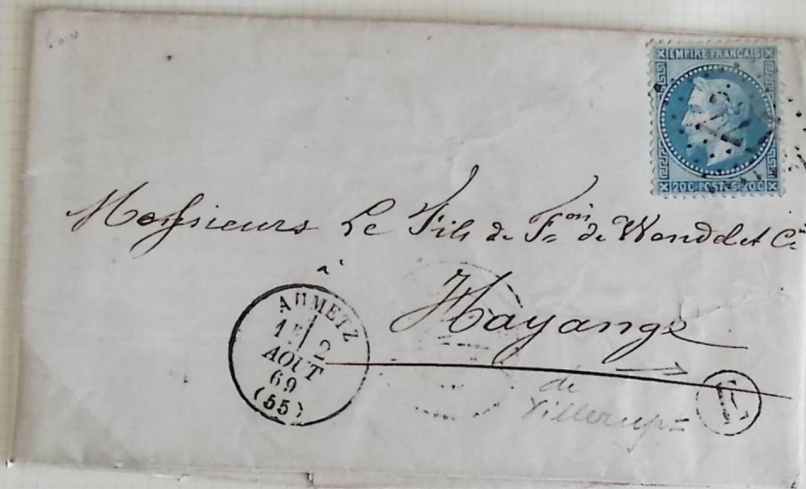 EMPIRE FRANÇAIS
20 C POSTES 20 C
Messieurs Le Fils de Fois de Wendel et Cie
à
Hayange
AUMETZ
1E 2
AOUT
69
(55)
de
Villerupt